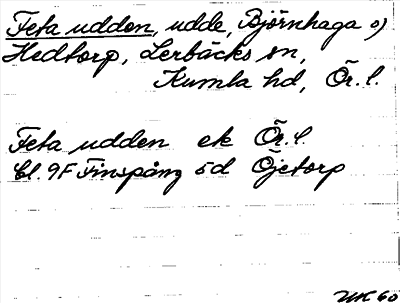 Feta udden, udde, Björnhaga o)
Hedtorp, Lerbäcks sn,
Kumla hd, Ör. l.
Feta udden ek Ör. l.
bl. 9F Finspång 5d Öjetorp
60